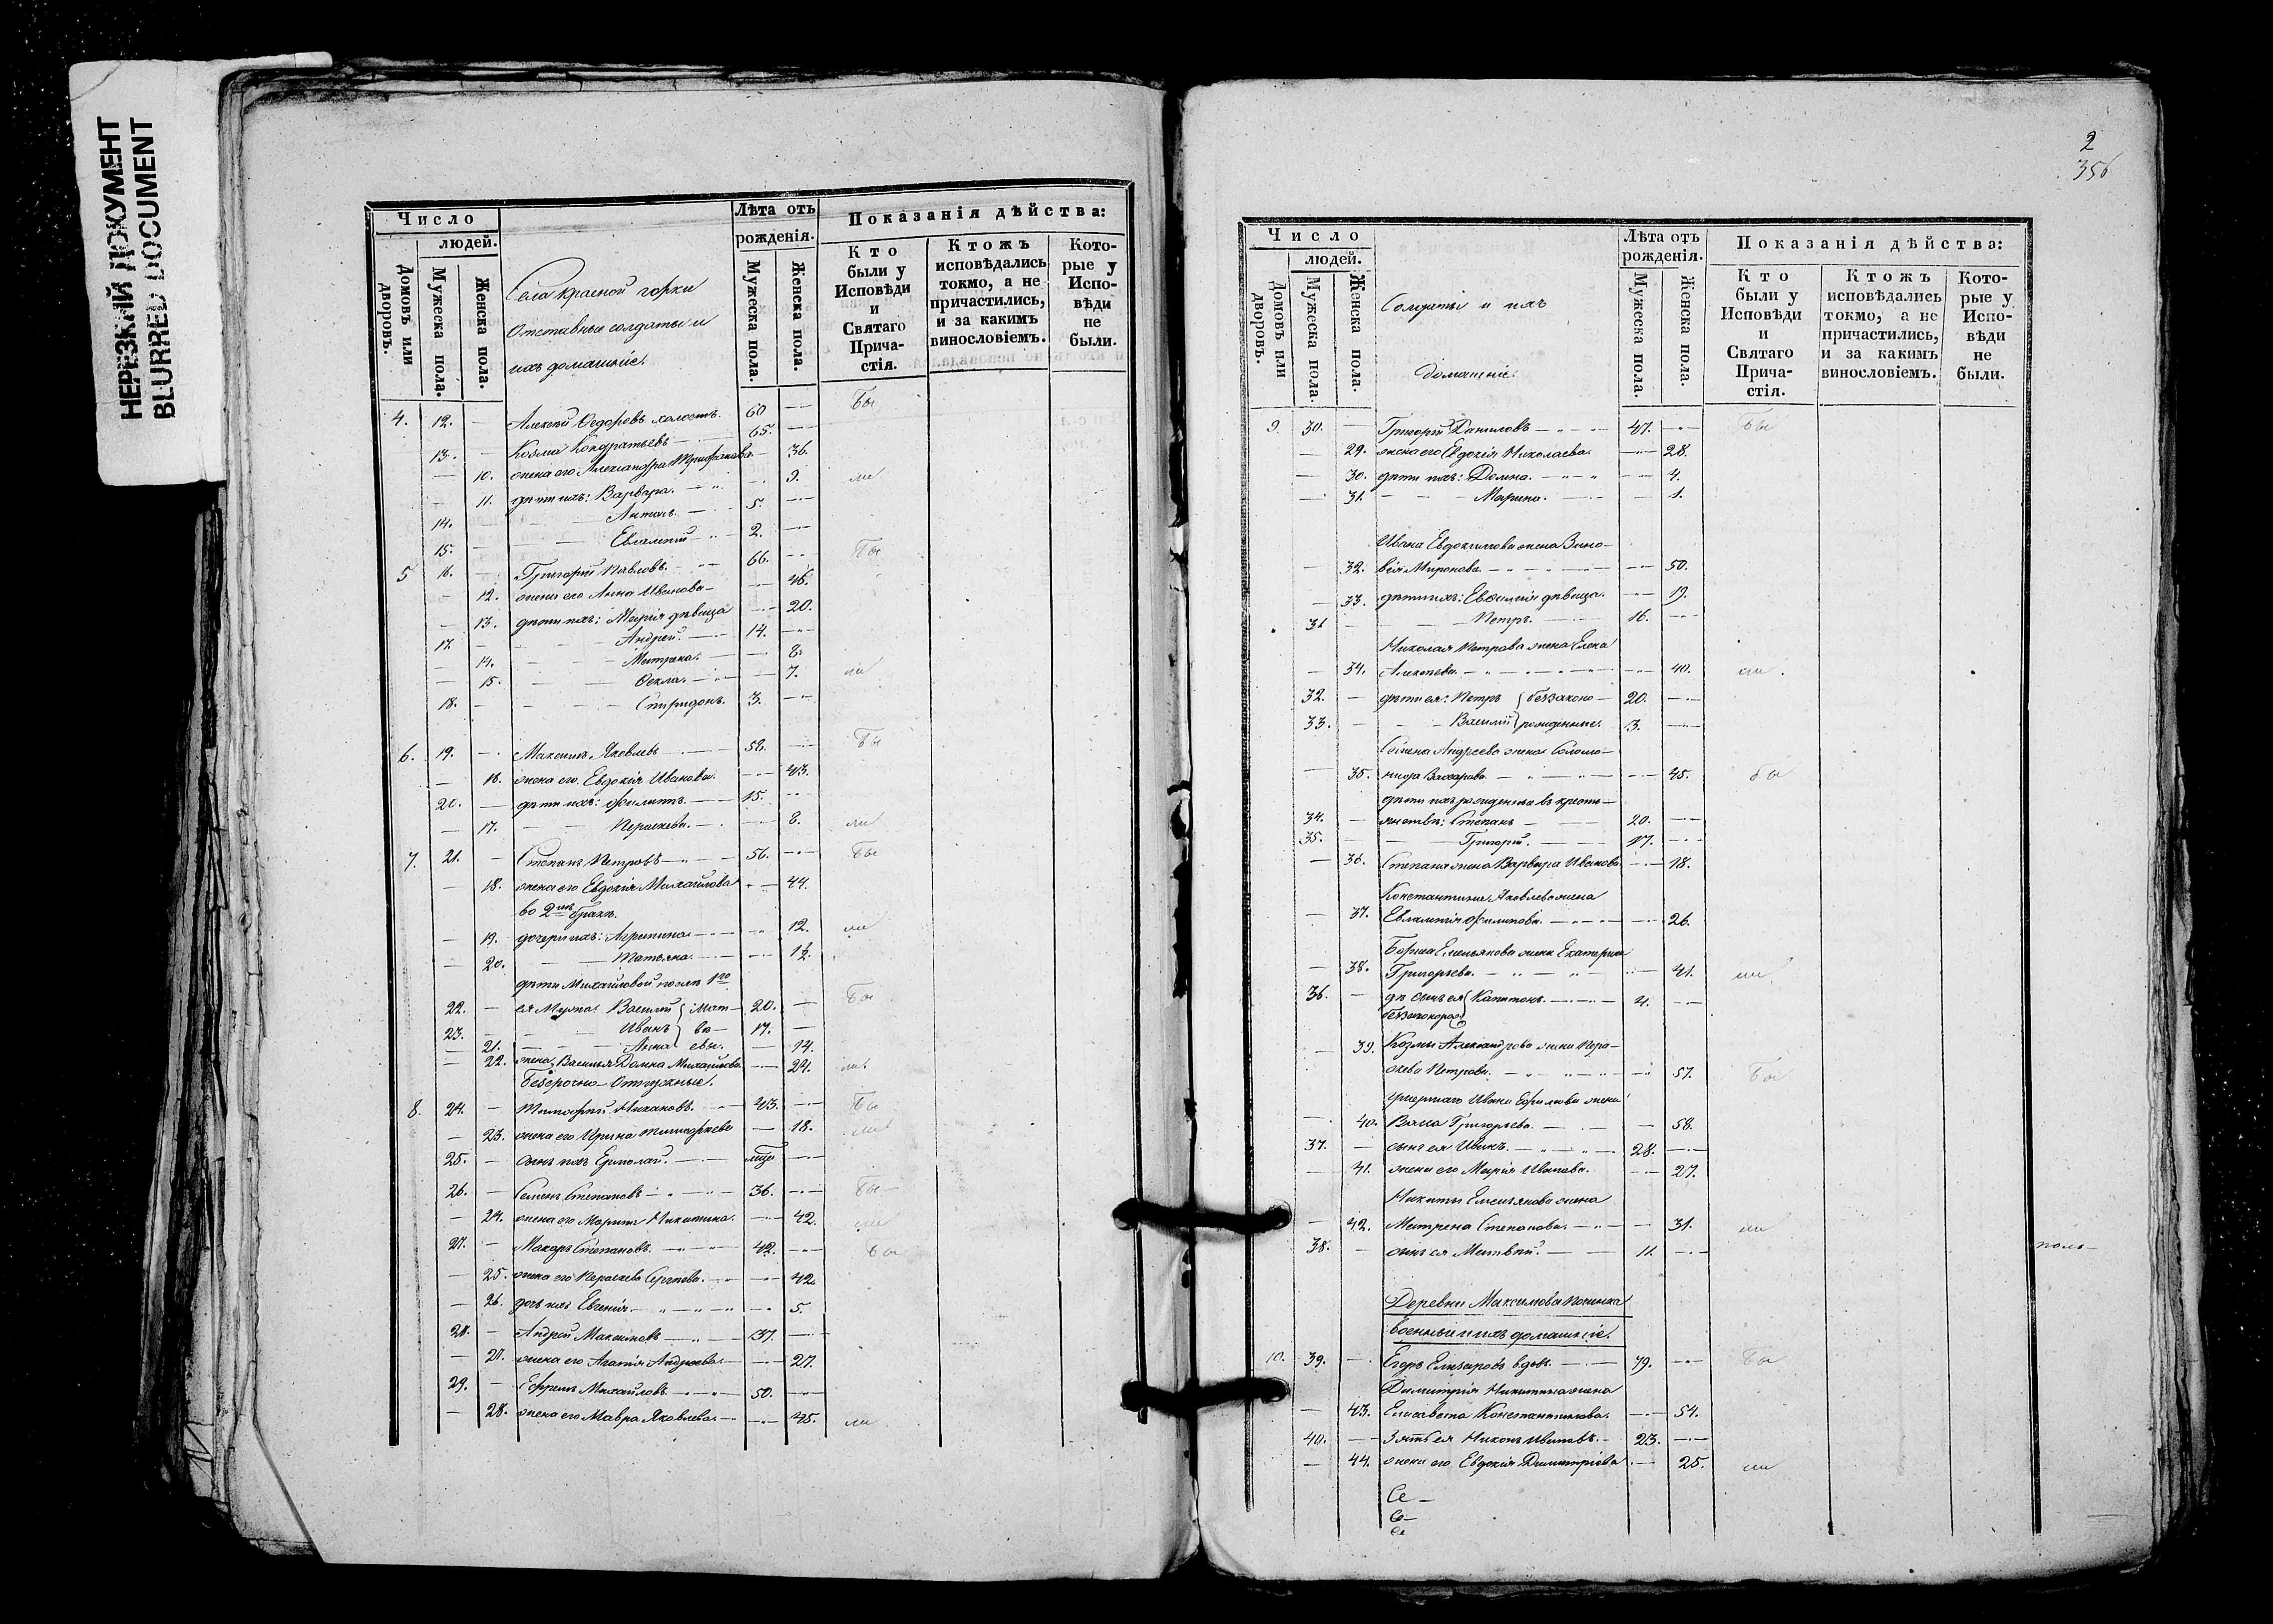 НЕРЕЗКИЙ ДОКУМЕНТ
BLURRED DOCUMENT
Число
людей.
Домовъ или дворовъ.
Мужеска пола.
Женска пола.
Села красной горки
Отставные солдаты и
ихъ домашніе.
Лѣта отъ рожденія.
Мужеска пола.
Женска пола.
Показанія дѣйства:
Кто были у Исповѣди и Святаго Причастія.
Ктожъ исповѣдались токмо, а не причастились, и за какимъ винословіемъ.
Которые у Исповѣди не были.
4. 12. — Алексѣй Ѳедоровъ холостъ. 60 — Бы
13. — Козма Кондратьевъ — 65. —
— 10. жена его Александра — 36.
— 11. дѣти ихъ: Варвара. — 9. ли
14. — Антонъ. — 5. —
15. — Евлампій — 2. —
5 16. — Григорій Павловъ. 66. — Бы
— 12. жена его Анна Иванова — 46.
— 13. дѣти ихъ: Марія дѣвица — 20.
17. — Андрей. — 14. —
— 14. — Матрена. — 8.
— 15. — Ѳекла. — 7. ли
18. — Спиридонъ. 3. —
6. 19. — Максимъ Яковлевъ — 58. — Бы
— 16. жена его Евдокія Иванова. — 43.
20. — дѣти ихъ: Филиппъ. — 15. —
— 17. — Параскева. — 8. ли
7. 21. — Степанъ Петровъ — 56. — Бы
— 18. жена его Евдокія Михайлова — 44.
во 2мъ бракѣ.
— 19. дочери ихъ: Агрипина — 12. ли
— 20. — Татьяна. — 1½.
дѣти Михайловой
22. — ея мужа: Василій Мат— 20. — Бы
23. — Иванъ вѣ— 17. —
— 21. — Анна евы. — 14.
— 22. жена Василья Домна Михайлова — 24. ли
Безсрочно-Отпускные.
8. 24. — Тимофей — 43. — Бы
— 23. жена его Ирина Тимофеева — 18. ли
25. — сынъ ихъ Ермолай. —
26. — Семенъ Степановъ — 36. — Бы
— 24. жена его Марина Никитина. — 42. ли
27. — Макаръ Степановъ. — 42. — Бы
— 25. жена его Параскева Сергѣева. — 42.
— 26. дочь ихъ Евгенія. — 5.
28. — Андрей Максимовъ — 37. —
— 27. жена его Агафія Андреева. — 27.
29. — Ефремъ Михайловъ. — 50. —
— 28. жена его Мавра Яковлева — 45. ли
2
356
Число
людей.
Домовъ или дворовъ.
Мужеска пола.
Женска пола.
Солдаты и ихъ
домашніе.
Лѣта отъ рожденія.
Мужеска пола.
Женска пола.
Показанія дѣйства:
Кто были у Исповѣди и Святаго Причастія.
Ктожъ исповѣдались токмо, а не причастились, и за какимъ винословіемъ.
Которые у Исповѣди не были.
9. 30. — Григорій Даниловъ — 47. — Бы
— 29. жена его Евдокія Николаева. — 28.
— 30. дѣти ихъ: Домна. — 4.
— 31. — Марина. — 1.
Ивана Евдокимова жена Зино—
— 32. вія Миронова. — 50.
— 33. дѣти ихъ: Евфимія дѣвица. — 19.
31 — Петръ. — 16. —
Николая Петрова жена Елена
— 34. Алексѣева. — 40. ли.
32. — дѣти ея: Петръ беззаконо— 20. —
33. — Василій рожденные. 3. —
Семена Андреева жена Соломо—
— 35. нида Захарова. — 45. бы
дѣти ихъ рожденные въ кресть—
34. — янствѣ: Степанъ — 20. —
35. — Григорій. — 17. —
— 36. Степана жена Варвара Иванова — 18.
Константина Яковлева жена
— 37. Евлампія Филипова. — 26.
Бориса Емельянова жена Екатерина
— 38. Григорьева. — 41. ли
36. — сынъ ея Капитонъ. — 4. —
— 39. Козмы Александрова жена Пара—
скева Петрова. — 57. Бы
умершаго Ивана Ефимова жена
— 40. Васса Григорьева. — 58.
37. — сынъ ея Иванъ. — 28. —
— 41. жена его Марія Иванова. — 27.
Никиты Емельянова жена
— 42. Матрена Степанова. — 31. ли
38. — сынъ ея Матвѣй. — 11. —
Деревни Максимова Починка
военные и ихъ домашніе.
10. 39. — Егоръ Елизаровъ вдовъ. — 79. — Бы
Димитрія Никитина жена
— 43. Елисавета Константинова. — 54.
40. — Зять ея Никонъ Ивановъ. — 23. —
— 44. жена его Евдокія Димитріева — 25. ли
Се—